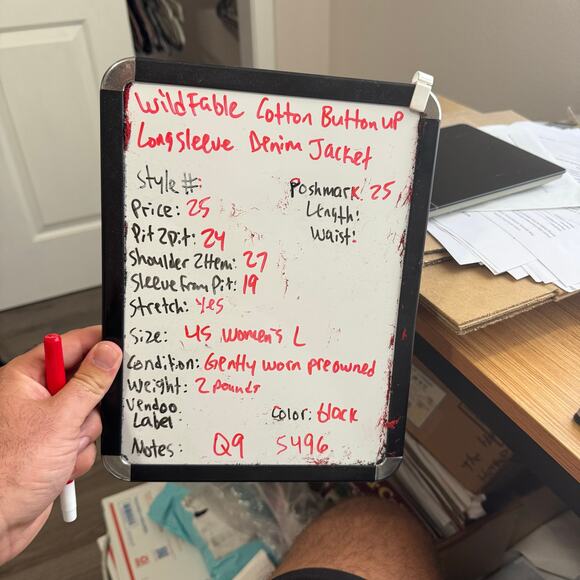 Wild Fable Cotton Button up
Longsleeve Denim Jacket
Style #:
Poshmark: 25
Price: 25
Length:
Pit 2 pit: 24
Waist:
Shoulder 2 Hem: 27
Sleeve From Pit: 19
Stretch: yes
Size: US Women's L
Condition: Gently worn preowned
Weight: 2 pounds
Vendoo
Label
Color: black
Notes: Q9 5496